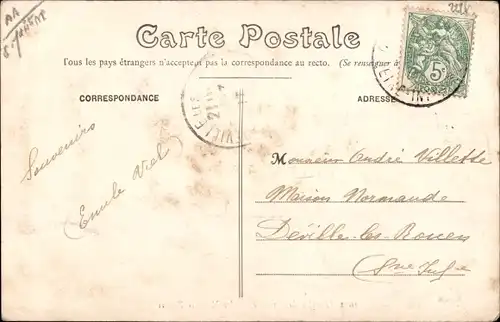 Carte Postale
Tous les pays étrangers n'acceptent pas la correspondance au recto. (Se renseigner à
CORRESPONDANCE
ADRESSE
5c
Souvenirs
Emile Viel
Monsieur André Villette
Maison Normande
Déville-les-Rouen
(Sne Infre